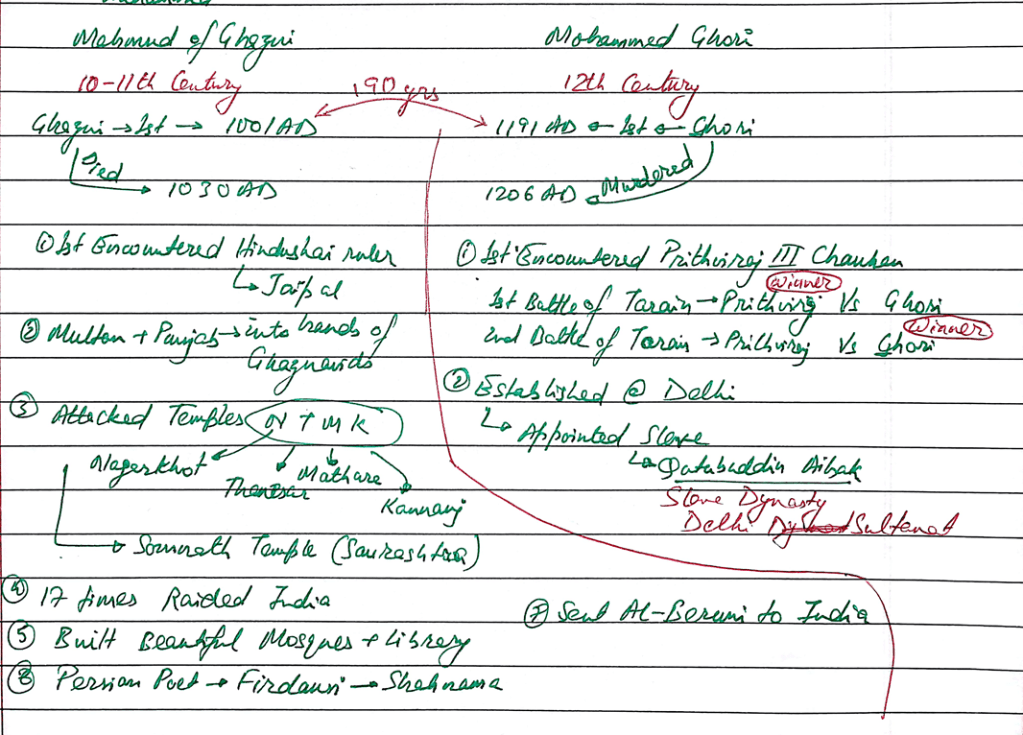 Mahmud of Ghazni
10-11th Century
190 yrs
Ghazni → Ist → 1001 AD
Died
1030 AD
① Ist Encountered Hindushai ruler
↳ Jaipal
② Multan + Panjab → into hands of
Ghaznavids
③ Attacked Temples N T M K
Nagarkhot
Thanesar
Mathura
Kannauj
Somnath Temple (Saurashtra)
④ 17 times Raided India
⑤ Built Beautiful Mosques + Library
⑧ Persian Poet → Firdausi → Shahnama
Mohammed Ghori
12th Century
1191 AD ← Ist ← Ghori
Murdered
1206 AD
① Ist Encountered Prithviraj III Chauhan
Winner
Ist Battle of Tarain → Prithviraj Vs Ghori
Winner
2nd Battle of Tarain → Prithviraj Vs Ghori
② Established @ Delhi
↳ Appointed Slave
↳ Qutubuddin Aibak
Slave Dynasty
Delhi Sultanat
⑦ Sent Al-Beruni to India